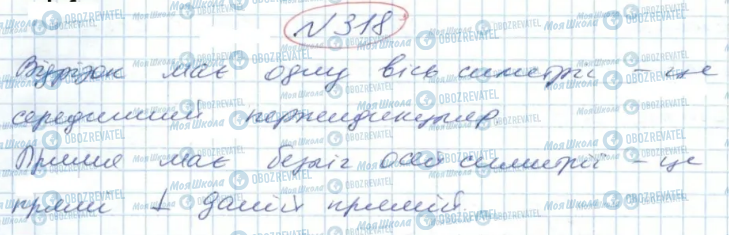 №318
Відрізок має одну вісь симетрії - це
серединний перпендикуляр
Пряма має безліч осей симетрії - це
прямі ⊥ даній прямій.